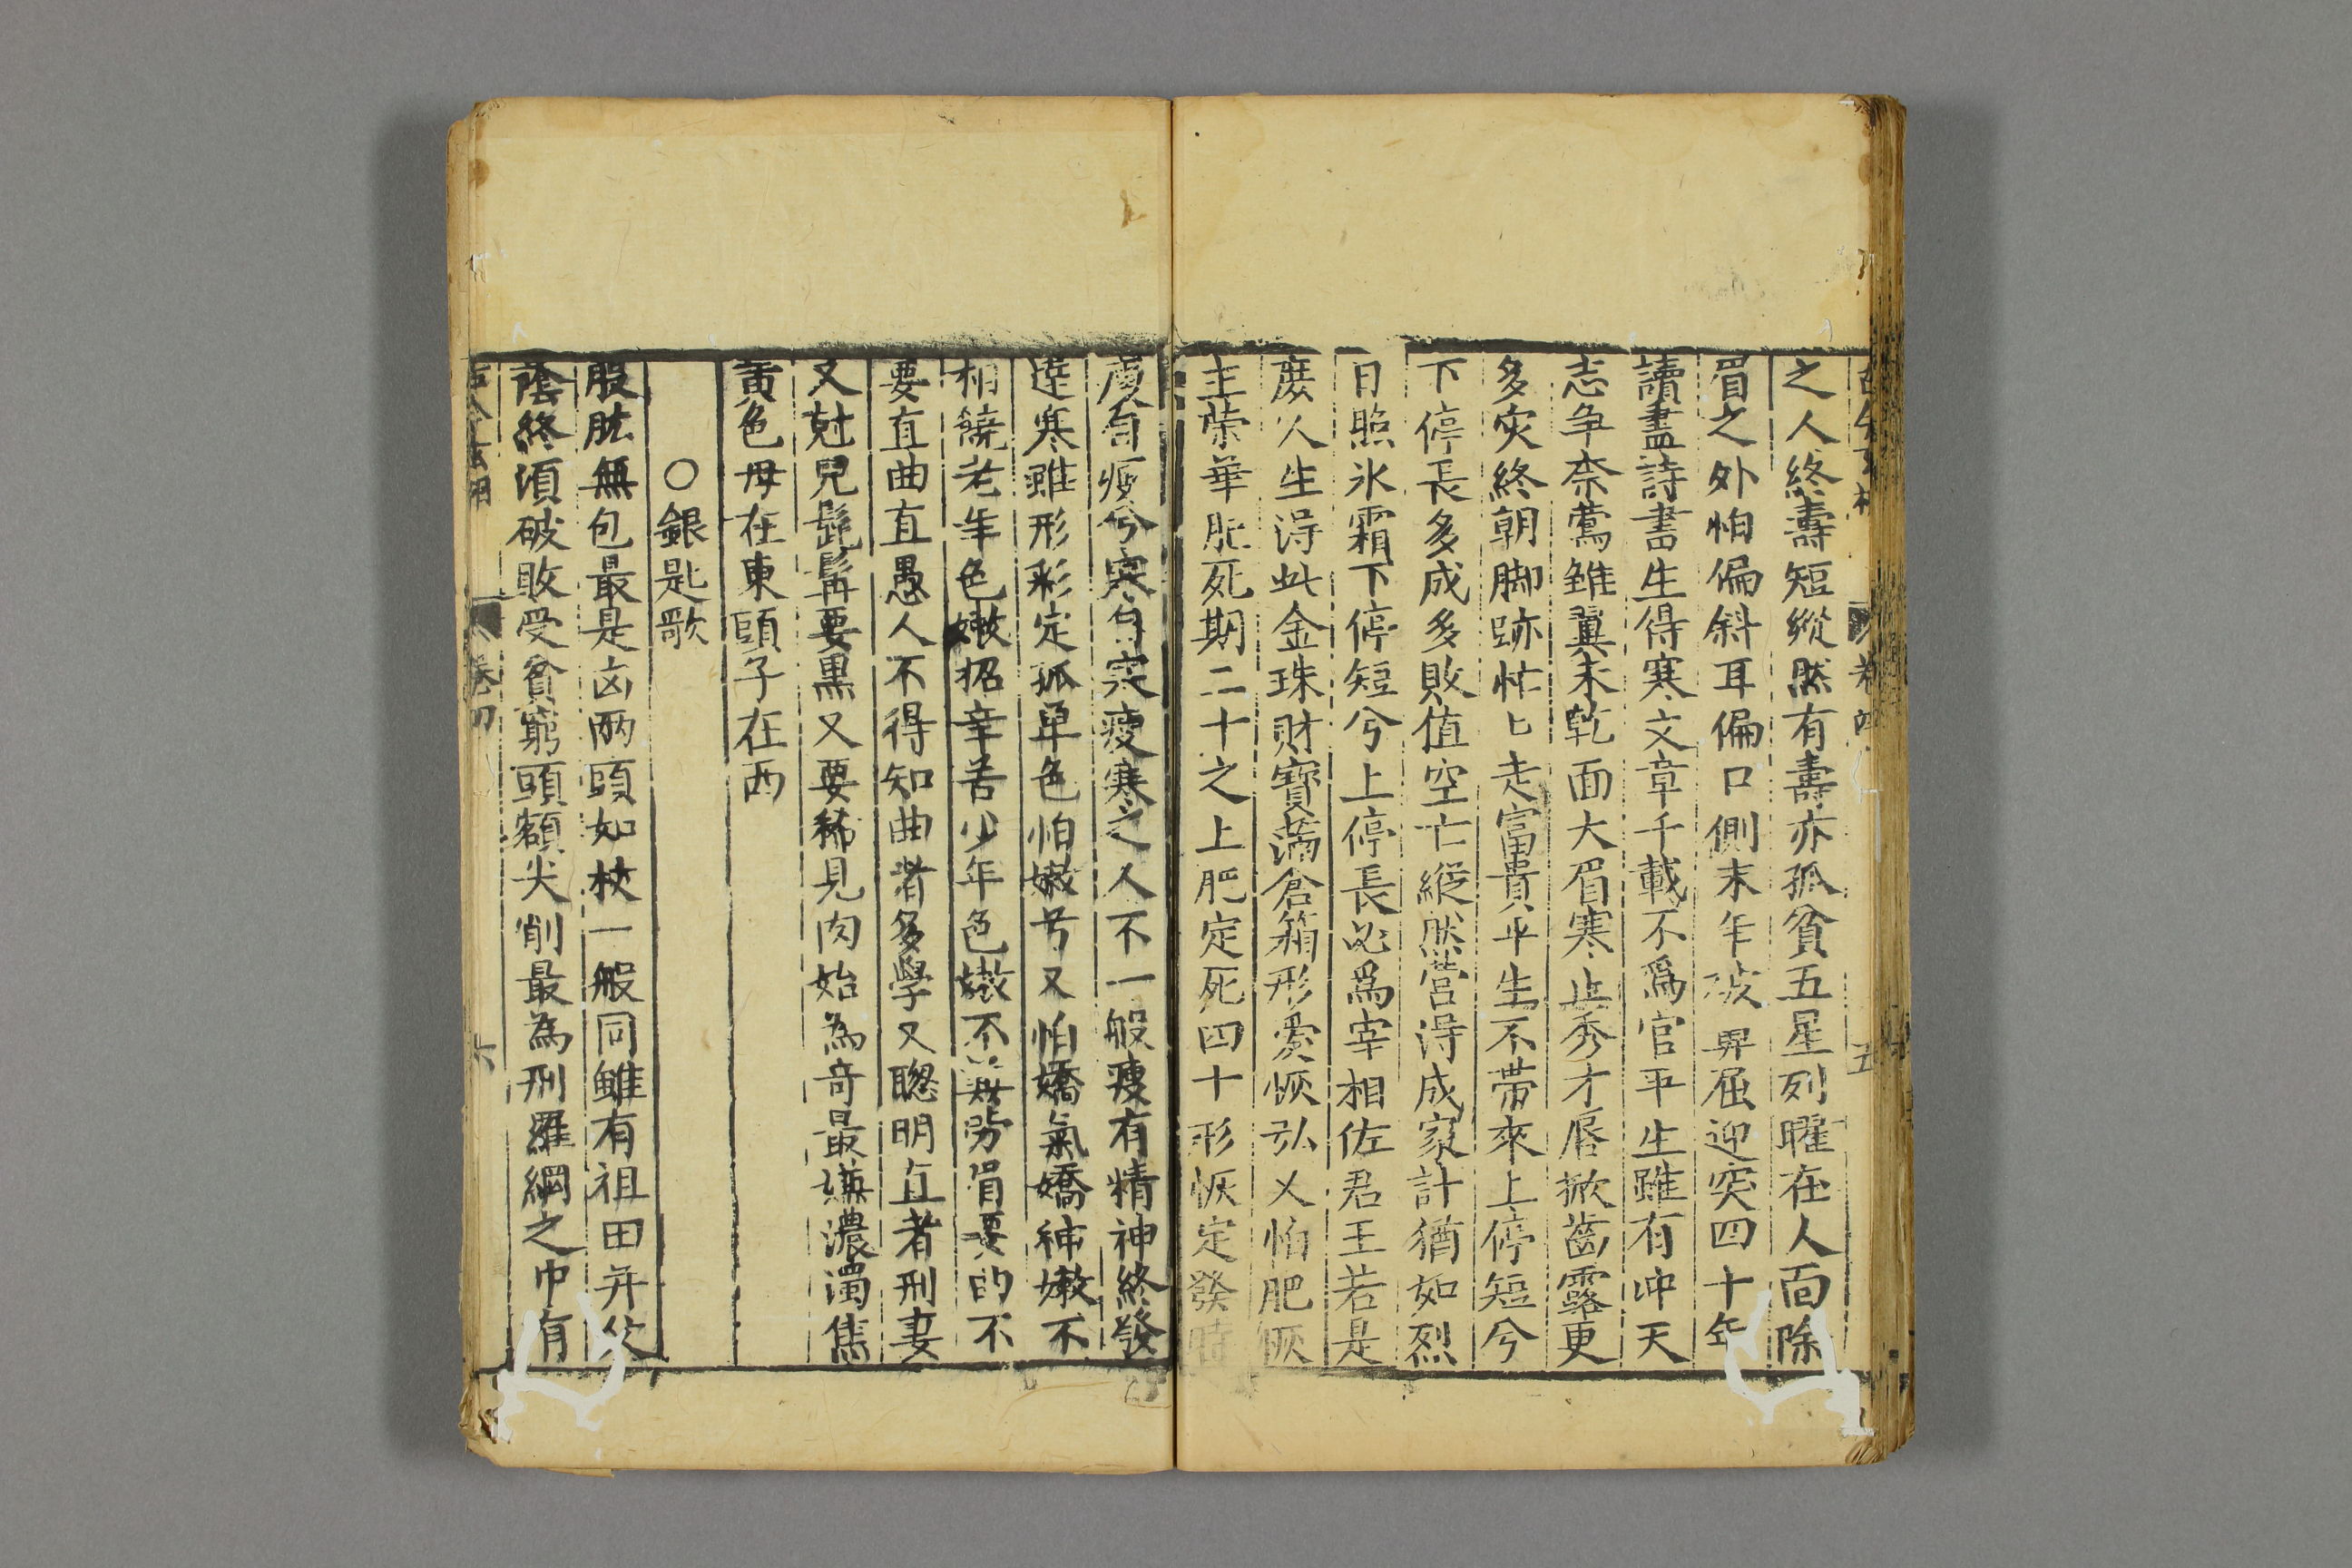 之人終壽短縱然有壽亦孤貧五星列曜在人面除
眉之外怕偏斜耳偏口側末年破鼻屈迎突四十年
讀盡詩書生得寒文章千載不爲官平生雖有冲天
志争奈鶯雏翼未乾面大眉寒止秀才唇掀齒露更
多灾終朝脚跡忙匕走富貴平生不带來上停短兮
下停長多成多敗值空亡縱然营淂成家計猶如烈
日照氷霜下停短兮上停長必爲宰相佐君王若是
庶人生淂此金珠財寳滿倉箱形爱恢弘乂怕肥恢
主荣華肥死期二十之上肥定死四十形恢定發時
瘦自瘦兮寒自寒瘦寒之人不一般瘦有精神終發
達寒雖形彩定孤单色怕嫩兮又怕嬌氣嬌神嫩不
相饒老年色嫩招辛苦少年色嫩不
要直曲直愚人不得知曲者多學又聦明直者刑妻
又尅兒髭髯要黒又要稀見肉始為竒最嫌濃濁焦
黄色母在東頭子在西
○銀匙歌
股肱無包最是凶两頭如枕一般同雖有祖田并父
蔭終須破敗受貧窮頭額尖削最為刑羅網之中有
卷四
六